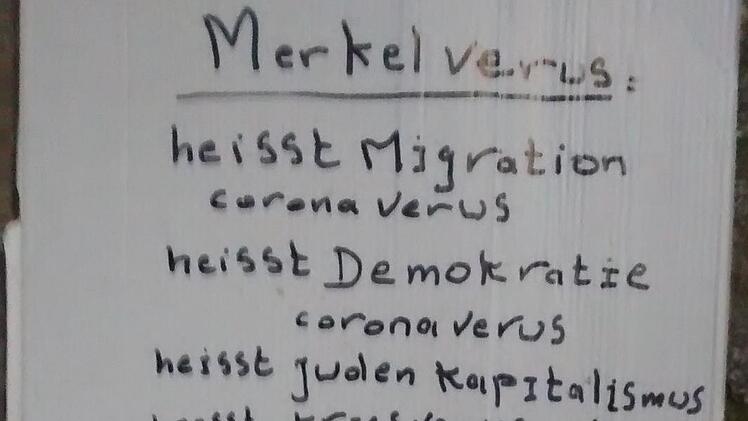 Merkel verus:
heisst Migration
corona verus
heisst Demokratie
corona verus
heisst juden Kapitalismus
heisst